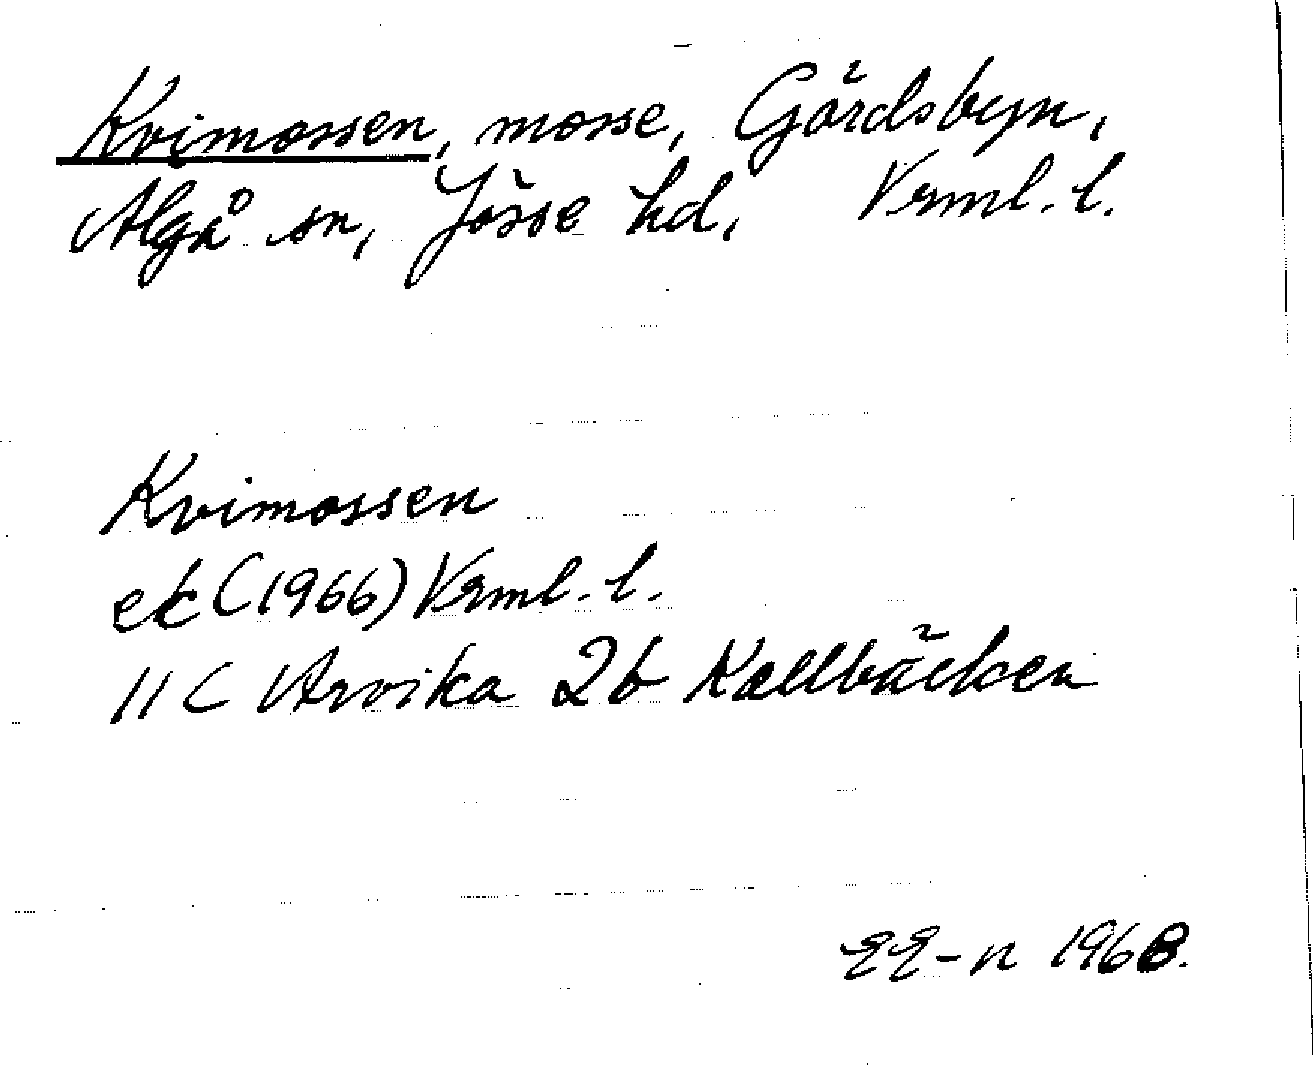 Kvimossen, mosse, Gårdsbyn,
Älgå sn, Jösse hd, Vrml. l.
Kvimossen
ek (1966) Vrml. l.
11 C Arvika 2b Kallbäcken
EE-n 1968.